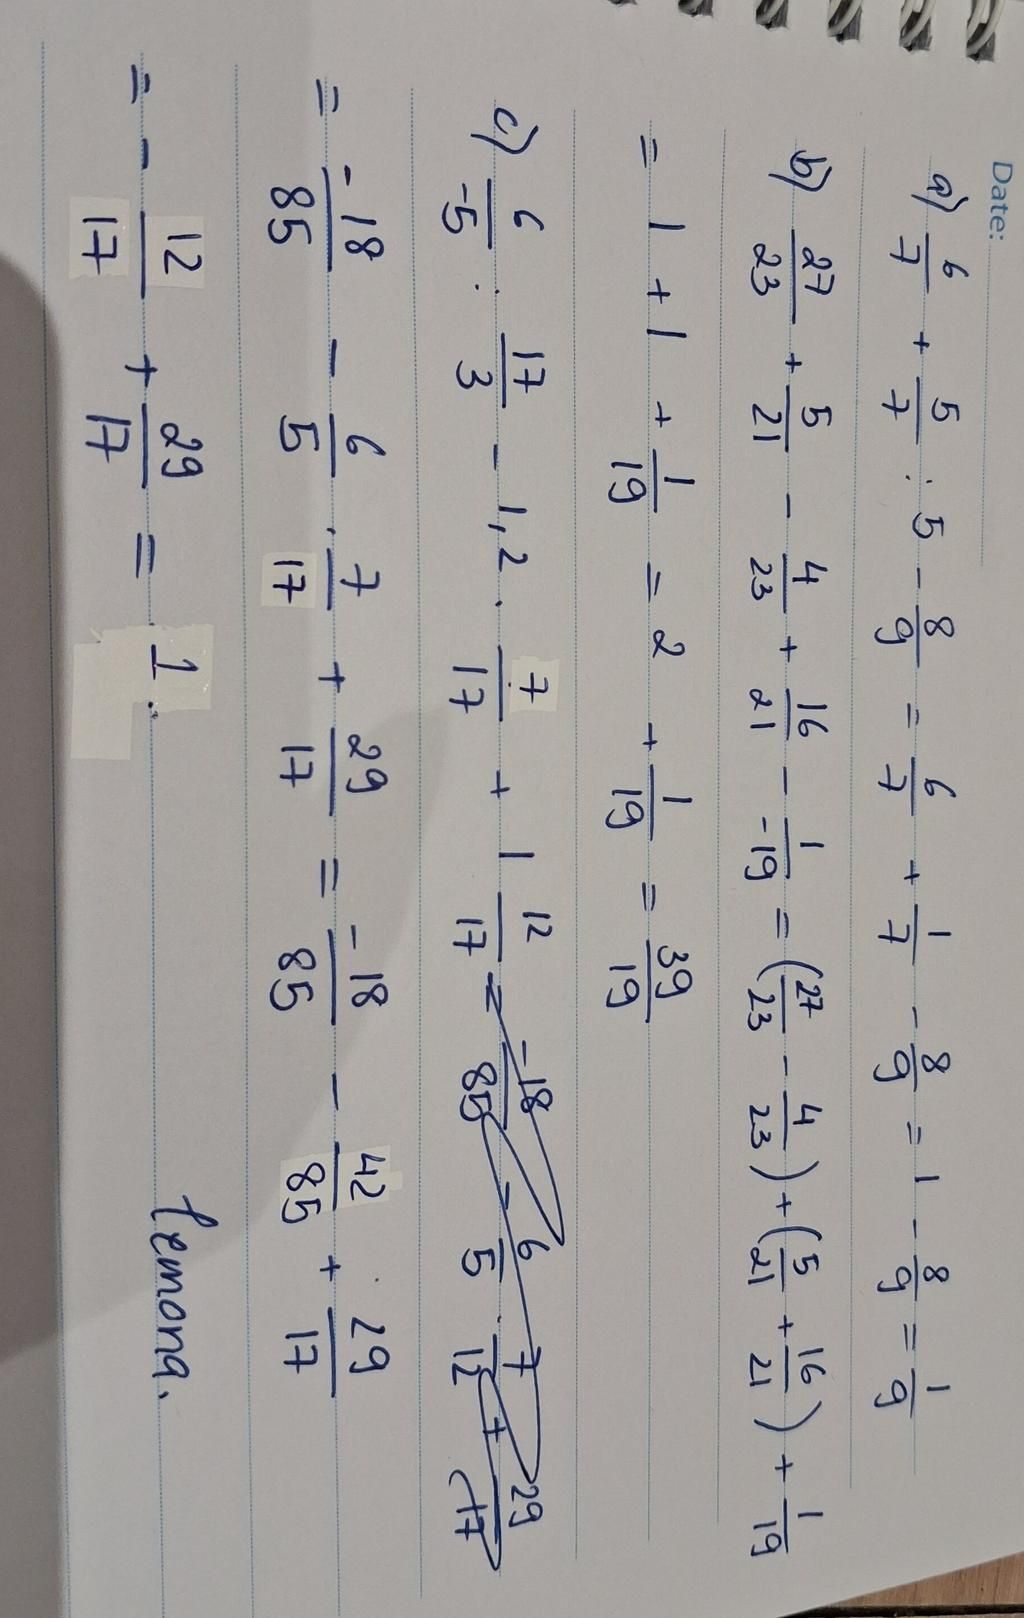 Date:
a) 6/7 + 5/7 : 5 - 8/9 = 6/7 + 1/7 - 8/9 = 1 - 8/9 = 1/9
b) 27/23 + 5/21 - 4/23 + 16/21 - 1/-19 = (27/23 - 4/23) + (5/21 + 16/21) + 1/19
= 1 + 1 + 1/19 = 2 + 1/19 = 39/19
c) 6/-5 : 17/3 - 1,2 . 7/17 + 1 12/17 = -18/85 - 6/5 . 7/12 + 29/17
= -18/85 - 6/5 . 7/17 + 29/17 = -18/85 - 42/85 + 29/17
= - 12/17 + 29/17 = 1.
lemona.